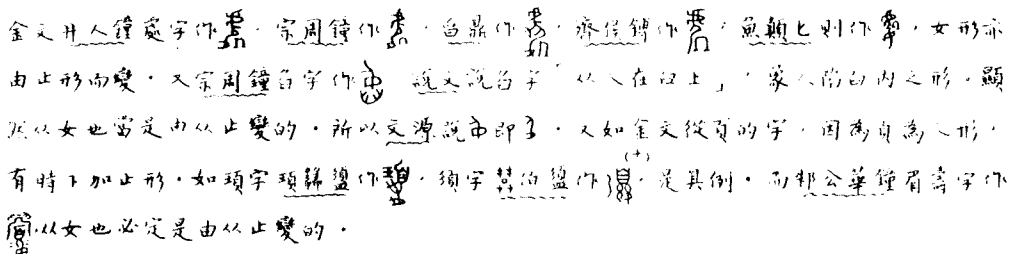 金文井人鐘處字作，宗周鐘作，𦣞鼎作，齊侯鎛作，魚顛匕則作，女形亦
由止形而變。又宗周鐘字作 說文說臽字「从人在臼上」，象人陷臼內之形。顯
然从女也當是由从止變的。所以文源說即。又如金文從頁的字，因為頁為人形，
有時下加止形。如頊字頊䜌盨作，須字伯盨作(+)，是其例。而邾公華鐘眉壽字作
从女也必定是由从止變的。